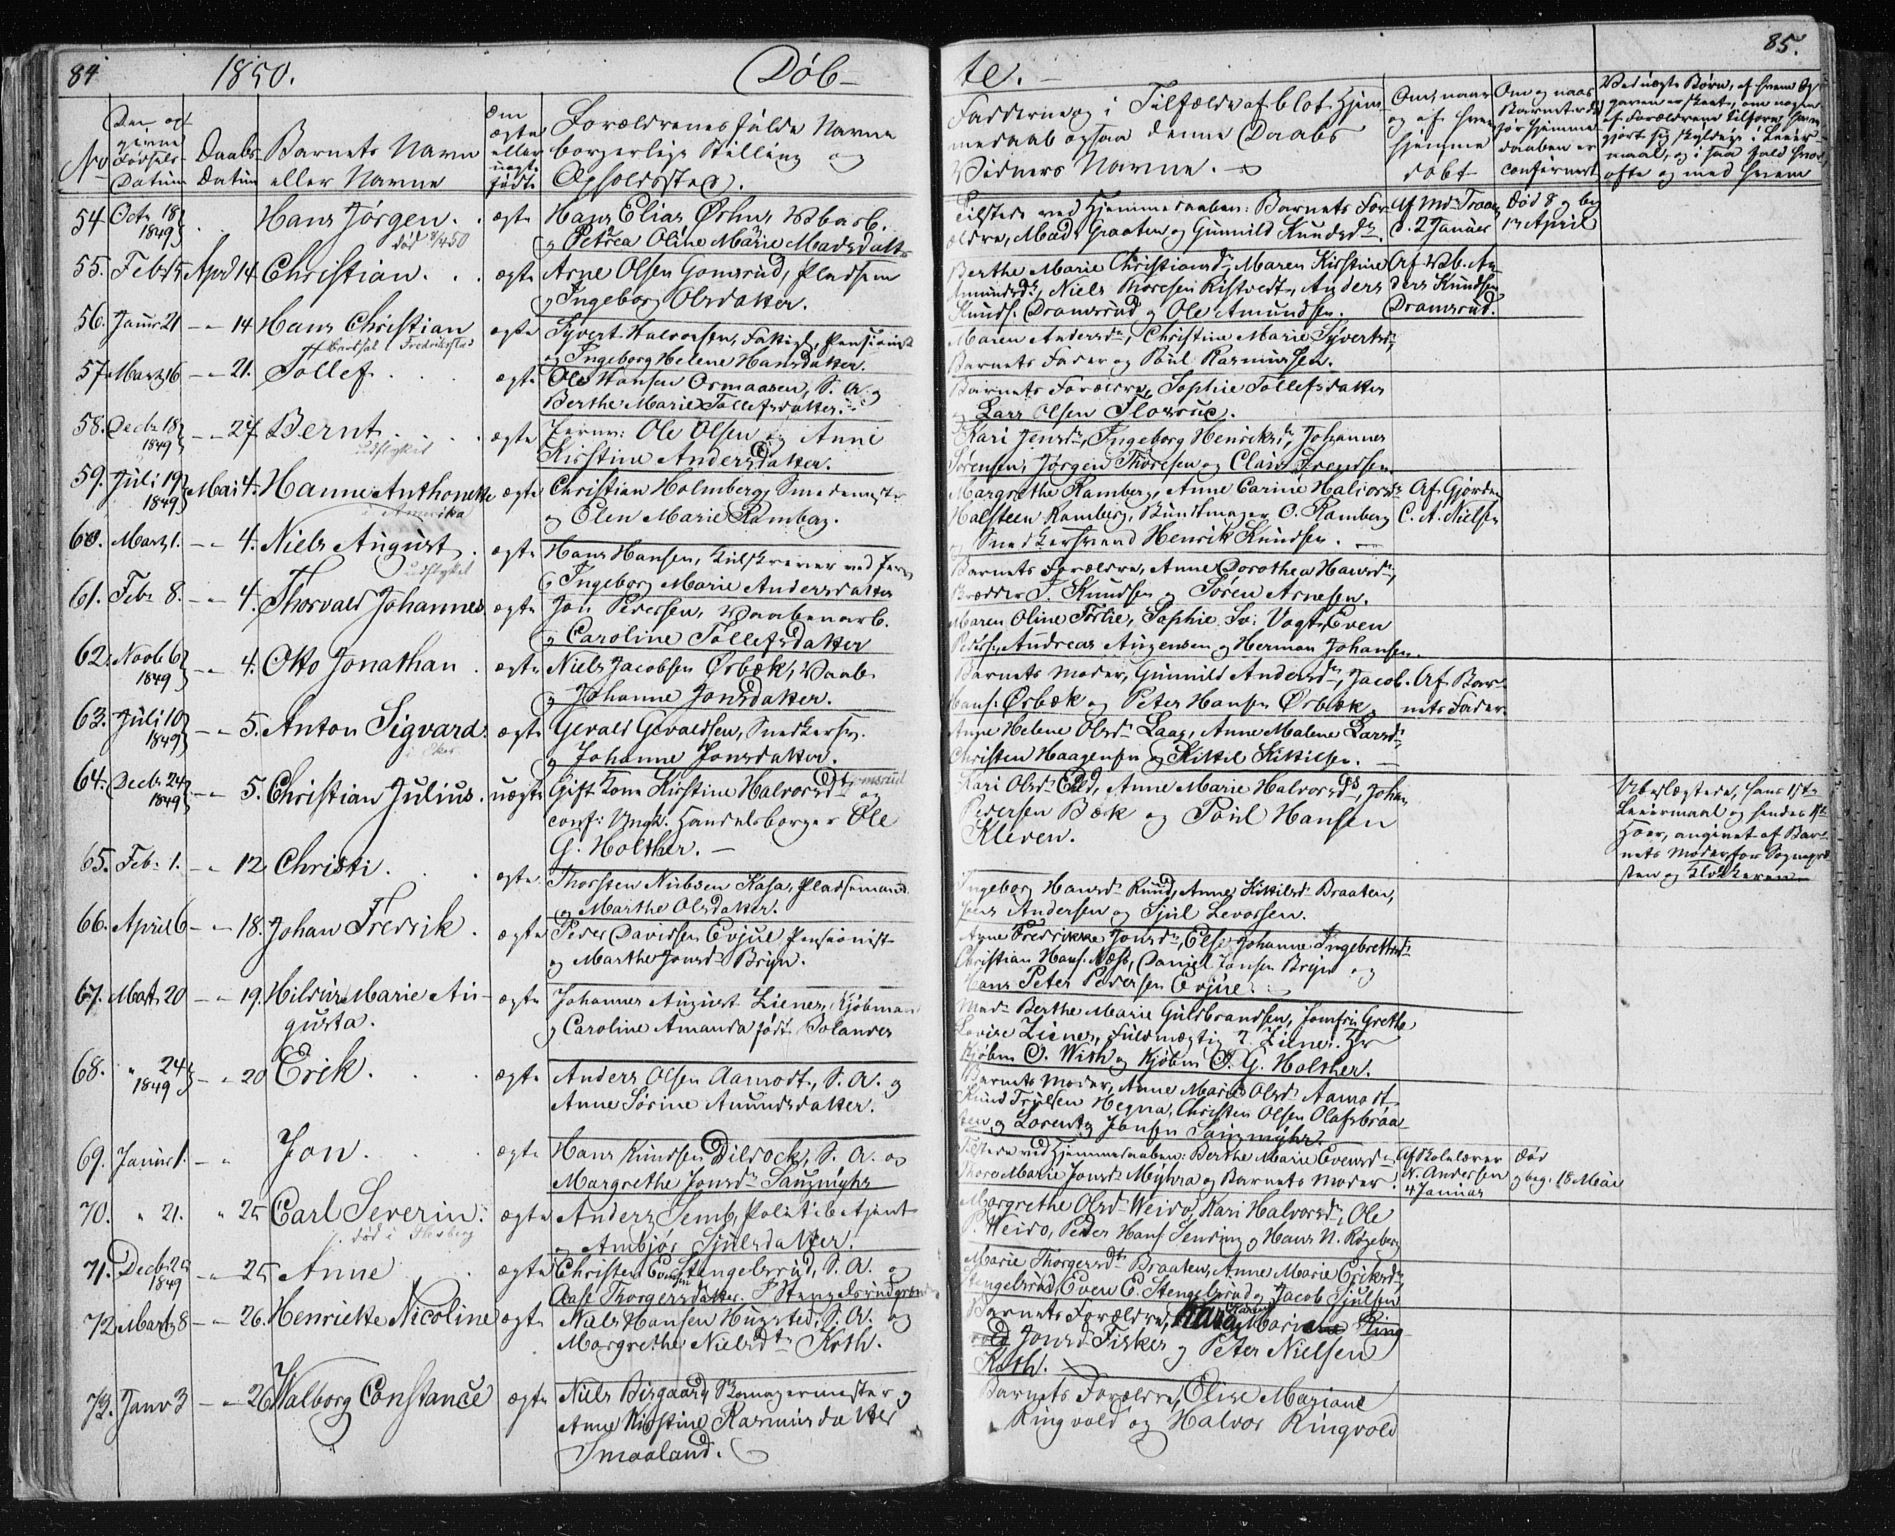 84 1850. Döb- te. 85.
No
Den op
givne
Fødsels-
Datum
Daabs
Datum
Barnets Navn
eller Navne
Om
ægte
eller
uægte
født
Forældrenes fulde Navne
borgerlige Stilling og
Opholdssted.
Fadderne og i Tilfælde af blot Hjem
medaab ogsaa denne Daabs
Vidners Navne.
Om, naar
og af hvem
hjemme
døbt
Om og naar
Barnet
for hjemme
daaben er
confirmert
Ved uægte Børn, af hvem Op
gaven er skeet, om nogen
af Forældrene tilforn have
gjort sig skyldig i Leier-
maal, og i saa fald hvor
ofte og med hvem
54. Octr 18 1849 Hans Jörgen. død 8/4 50 ægte Hans Elias Örhn, Vbarb.
og Petrea Oline Marie Madsdatter
Tilstede ved Hjemmedaaben: Barnets For
ældre, Mads Graaten og Gunnild Knudsdr.
Af Md: Traaen
d. 2 Januar
Död 8 og beg
17 April
55. Febr 15 April 14 Christian. ægte Arne Olsen Gomsrud, Pladsem
og Ingeborg Olsdatter.
Berthe Marie Christiansdr, Maren Kirstine
Amundsdr, Niels Thoresen Kistvedt, Anders
Knuds. Dramsrud og Ole Amundsen.
Af Vb. An
ders Knudsen
Dramsrud.
56. Janur 21 - " 14 Hans Christian ægte Syvert Halvorsen, Fattigl, Pensionist
Fredrikstad
og Ingeborg Helene Hansdatter.
Maren Andersdr, Christine Marie Syvertsdr,
Barnets Fader og Poul Rasmussen.
57 Marts 16 - " 21. Tollef. ægte Ole Hansen Ormaasen, S. A. og
Berthe Marie Tollefsdatter.
Barnets Forældre, Sophie Tollefsdatter
og Lars Olsen Flosrud.
58. Decbr 18 1849 - " 27 Bernt. udflyttet ægte Jernv: Ole Olsen og Anne
Kirstine Andersdatter.
Kari Jensdr, Ingeborg Henriksdr, Johannes
Sörensen, Jörgen Thoresen og Claus Svendsen
59. Juli 19 1849 Mai 4. Hanne Anthonette i Amerika ægte Christian Holmberg, Smedemester
og Elen Marie Ramberg.
Margrethe Ramberg, Anne Carine Halvorsdr
Halsteen Ramberg, Buntmager O. Ramberg
og Snedkersvend Henrik Knudsen.
Af Gjordem
C. A. Nielsen
60. Marts 1. - " 4. Niels August udflyttet ægte Hans Hansen, Kulskriver ved Jernv
og Ingeborg Marie Andersdatter
Barnets Forældre, Anne Dorothea Hansdr,
Brødder J. Knudsen og Sören Arnesen.
61. Febr 8. - " 4. Thorvald Johannes ægte Jon Pedersen, Vaabenarb.
og Caroline Tollefsdatter
Maren Oline Törlie, Sophie Sv: Vogt, Even
Peders., Andreas Augensen og Herman Johansen.
62. Novb 6 1849 - " 4. Otto Jonathan ægte Niels Jacobsen Örbæk, Vaab.
og Johanne Jonsdatter.
Barnets Moder, Gunnild Andersdr, Jacob
Hans. Örbæk og Peter Hansen Örbæk
Af Bar-
nets Fader
63. Juli 10 1849 - " 5. Anton Sigvard. i Eker ægte Gevald Gevaldsen, Snedkersv.
og Johanne Jonsdatter.
Anne Helene Olsdr Laag, Anne Malene Larsdr,
Christen Haagensen og Kittil Kittilsen.
64. Decbr 24 1849 - " 5. Christian Julius. uægte Gift Kone Kirstine Halvorsdtr og
conf: Ungk. Handelsborger Ole
G. Holther.
Kari Olsdr Eid, Anne Marie Halvorsdr, Johan
Pedersen Bæk og Poul Hansen
Kleven.
Ubeslægtede, hans 1ste
Leiermaal og hendes 1ste
Hoer, angivet af Bar-
nets Moder for Sognepre
sten og Klokkeren
65. Feb. 1. - " 12 Christi. ægte Thorsten Nielsen Kasa, Pladsemand
og Marthe Olsdatter.
Ingeborg Hansdr Ruud, Anne Kittilsdr Braaten,
Jens Andersen og Sjul Levorsen.
66. April 6 - " 18. Johan Fredrik. ægte Peder Davidsen Evjue Pensionist
og Marthe Jonsdr Bryn.
Anne Fredrikke Jonsdr, Else Johanne Ingebretsdr
Christian Hans. Næss, Daniel Jonsen Bryn og
Hans Peter Pedersen Evjue.
67. Mart. 20 - " 19. Hildur Marie Au-
gusta.
ægte Johannes August Ziener, Kjöbman
og Caroline Amanda född Bolander
Mad. Berthe Marie Guldbrandsen, Jomfru Grethe
Lovise Ziener, Fuldmægtig T. Ziener. Hr
Kjöbm O. With og Kjöbm O. G. Holther.
68. " 24 1849 - " 20 Erik. ægte Anders Olsen Aamodt, S. A. og
Anne Sörine Amundsdatter.
Barnets Moder, Anne Marie Olsdr Aamodt
Knud Trulsen Hegna, Christen Olsen Olafsbraa
ten og Lorentz Jonsen Saugmyhr.
69. Janur 1. - " Jon. ægte Hans Knudsen Dilrock, S. A. og
Margrethe Jonsdr Saugmyhr
Tilstede ved Hjemmedaaben: Berthe Marie Evensdr
Thore Marie Jonsdr Myhra og Barnets Moder.
Af Skolelærer
N. Andersen
4 Januar
Död
og beg. 18 Mai
70. " 21. " 25 Carl Severin. död i ægte Anders Semb, Politibetjent
og Ambjör Sjulsdatter.
Margrethe Olsdr Weird, Kari Halvorsdr, Ole
P. Weird, Peder Hans. Sending og Hans N. Rögeberg
71. Decbr 25 1849 - " 25 Anne ægte Christen Evensen Stengelsrud, S. A. og
Aase Thorgersdatter. Stengelsrudgrind
Marie Thorgersdtr Braaten, Anne Marie Eriksdr
Stengelsrud, Even E. Stengelsrud og Jacob Sjulsen
72 Marts 8 - " 26. Henriette Nicoline ægte Niels Hansen Hugsted, S. A. og
Margrethe Nielsdtr Koth.
Barnets Forældre, Karen Mariane Ring
vold Jonsdr Fisker og Peter Nielsen
Koth.
73. Janr 3 - " 26 Walborg Constance ægte Niels Birgaard, Skomagermester og
Anne Kirstine Rasmusdatter
Smaaland.
Barnets Forældre, Elise Mariane
Ringvold og Halvor Ringvold